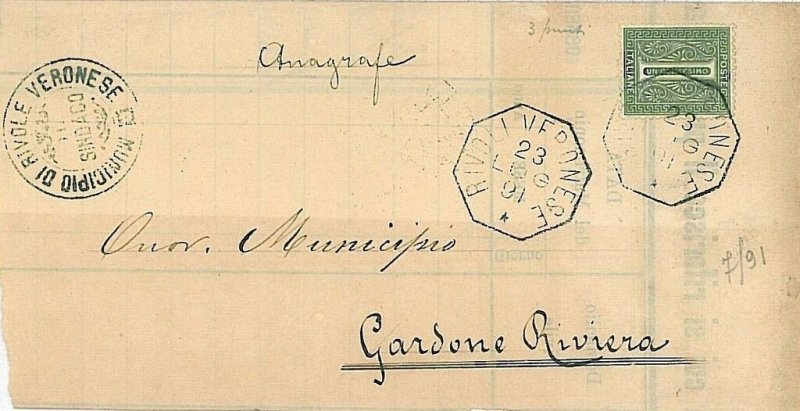 3 punti
Anagrafe
POSTE
ITALIANE
1
UN CENTESIMO
MUNICIPIO DI RIVOLE VERONESE
SINDACO
RIVOLI VERONESE
23
LUG
91
23
Onor. Municipio
7/91
Gardone Riviera